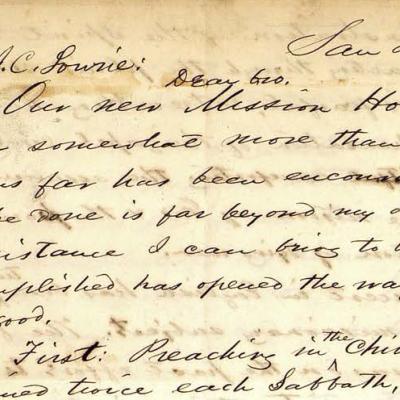 San
J.C. Lowrie:
Dear bro.
Our new Mission Ho
somewhat more than
us far has been encour
be done is far beyond my
istance I can bring to
mplished has opened the wa
good.
First: Preaching in the Chin
ned twice each Sabbath,